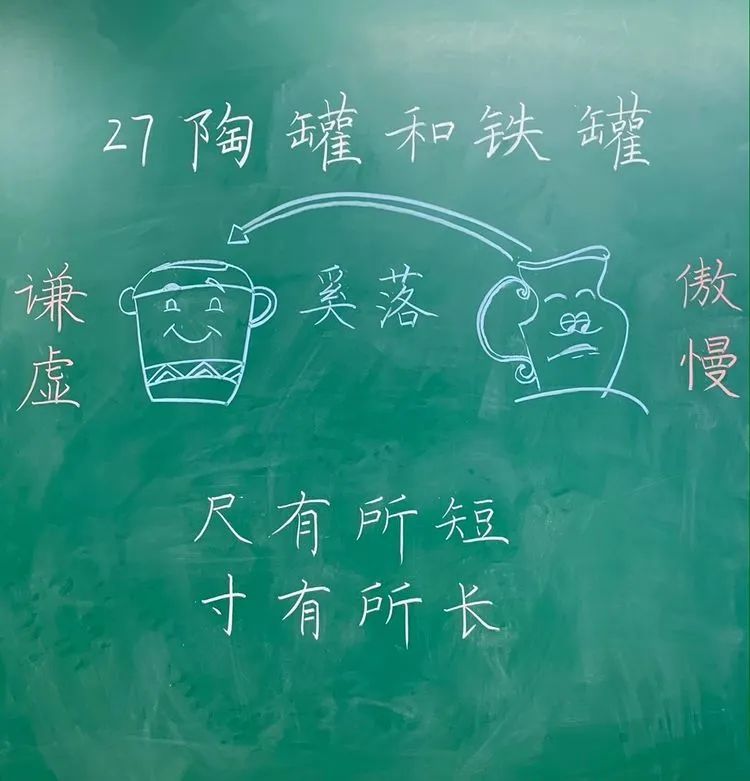 27 陶罐和铁罐
谦虚
奚落
傲慢
尺有所短
寸有所长